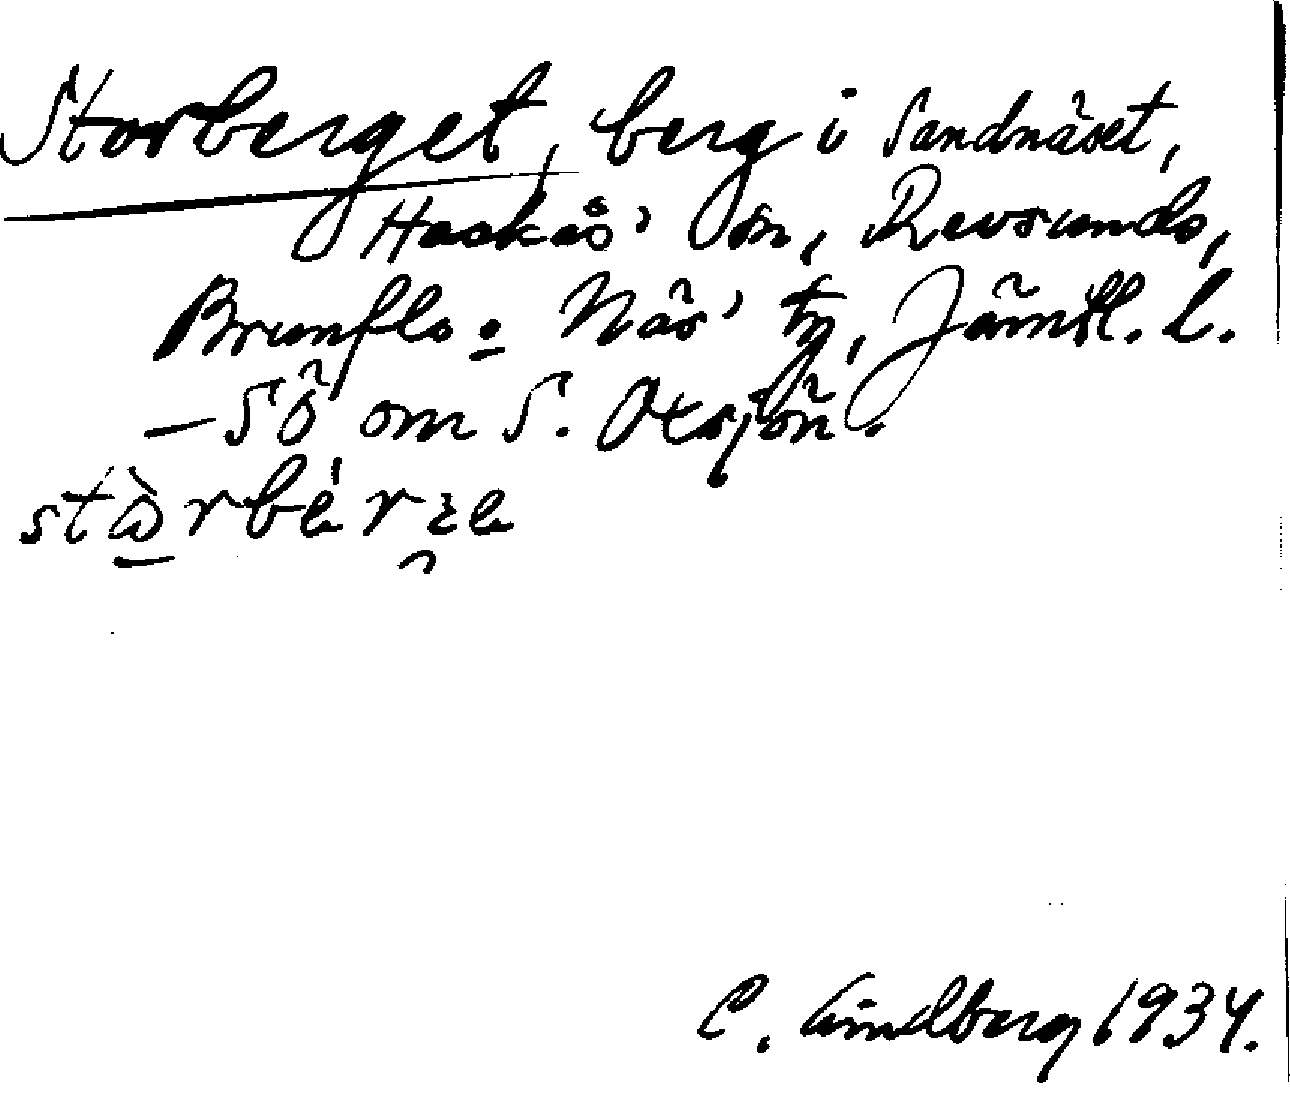 Storberget, berg i Sandnäset,
Hackås' sn, Revsunds,
Brunflo o Näs' tg, Jämtl. l.
– SÖ om S. Oxsjön.
stɷ̀rbérʒe
C. Lindberg 1934.